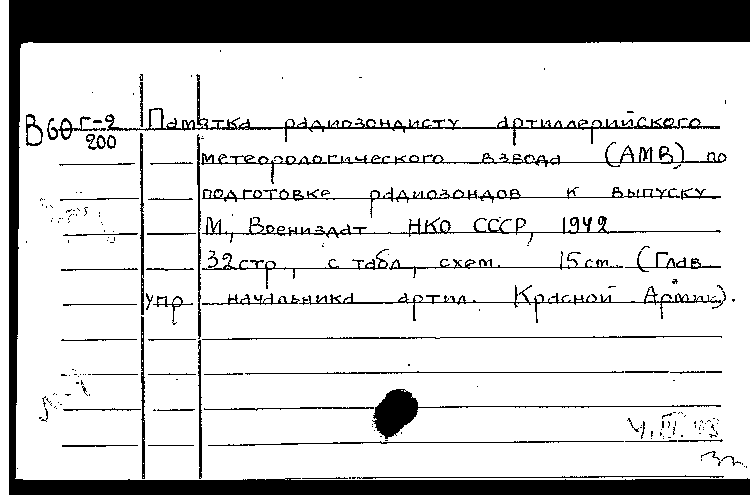 В60 Г-9/200 Памятка радиозондисту артиллерийского
метеорологического взвода (АМВ) по
подготовке радиозондов к выпуску
М., Воениздат НКО СССР, 1942
32стр., с табл., схем. 15см. (Глав
упр начальника артил. Красной Армии).